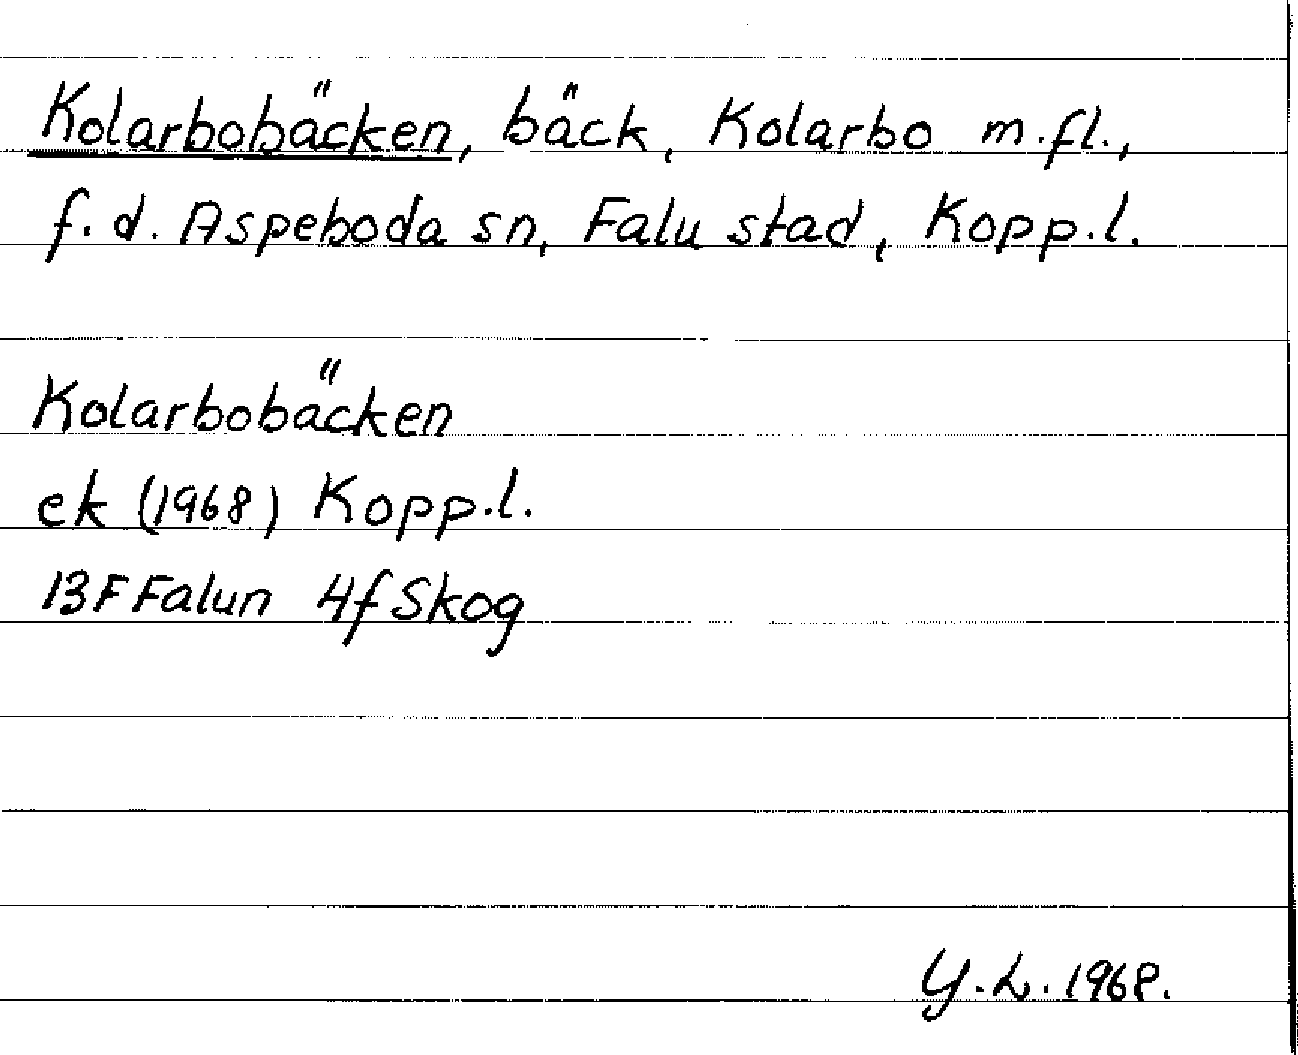 Kolarbobäcken, bäck, Kolarbo m.fl.,
f.d. Aspeboda sn, Falu stad, Kopp.l.
Kolarbobäcken
ek (1968) Kopp.l.
13F Falun 4f Skog
Y.L. 1968.